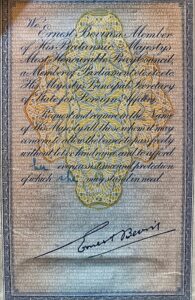 We Ernest Bevin, a Member
of His Britannic Majesty's
Most Honourable Privy Council,
a Member of Parliament, etc. etc. etc.
His Majesty's Principal Secretary
of State for Foreign Affairs,
Request and require in the Name
of His Majesty all those whom it may
concern to allow the bearer to pass freely
without let or hindrance, and to afford
every assistance and protection
of which may stand in need.
Ernest Bevin